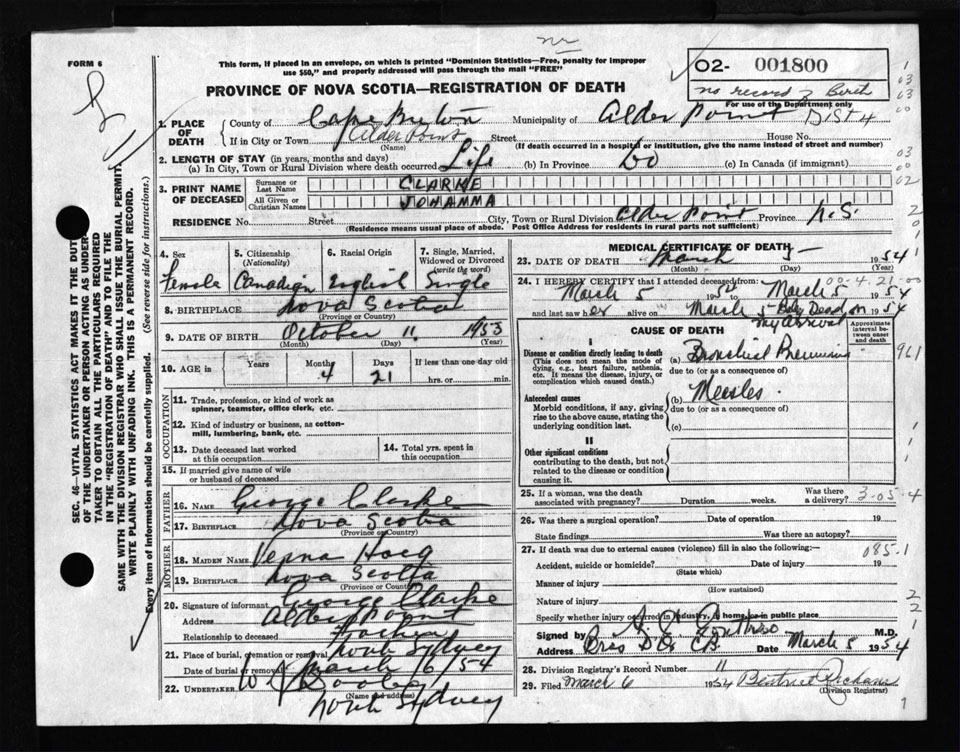 FORM 6
This form, if placed in an envelope, on which is printed "Dominion Statistics—Free, penalty for improper
use $50," and properly addressed will pass through the mail "FREE"
nr
02- 001800
no record of Birth
For use of the Department only
PROVINCE OF NOVA SCOTIA—REGISTRATION OF DEATH
1. PLACE OF DEATH
County of Cape Breton Municipality of Alder Point Dist 4
If in City or Town Alder Point Street House No.
(Name) (If death occurred in a hospital or institution, give the name instead of street and number)
2. LENGTH OF STAY (in years, months and days)
(a) In City, Town or Rural Division where death occurred Life (b) In Province Do (c) In Canada (if immigrant)
3. PRINT NAME OF DECEASED
Surname or Last Name CLARKE
All Given or Christian Names JOHANNA
RESIDENCE No. Street City, Town or Rural Division Alder Point Province N.S.
(Residence means usual place of abode. Post Office Address for residents in rural parts not sufficient)
4. Sex 5. Citizenship (Nationality) 6. Racial Origin 7. Single, Married, Widowed or Divorced (write the word)
Female Canadian English Single
8. BIRTHPLACE Nova Scotia
(Province or Country)
9. DATE OF BIRTH October 11 1953
(Month) (Day) (Year)
10. AGE in Years Months Days If less than one day old
4 21 hrs. or min.
OCCUPATION
11. Trade, profession, or kind of work as
spinner, teamster, office clerk, etc.
12. Kind of industry or business, as cotton-
mill, lumbering, bank, etc.
13. Date deceased last worked at this occupation
14. Total yrs. spent in this occupation
15. If married give name of wife
or husband of deceased
FATHER
16. NAME George Clarke
17. BIRTHPLACE Nova Scotia
(Province or Country)
MOTHER
18. MAIDEN NAME Verna
19. BIRTHPLACE Nova Scotia
(Province or Country)
20. Signature of informant George Clarke
Address Alder Point
Relationship to deceased Father
21. Place of burial, cremation or removal North Sydney
Date of burial or removal March 6/54
22. UNDERTAKER W J Dooley
(Name and address)
North Sydney
MEDICAL CERTIFICATE OF DEATH
23. DATE OF DEATH March 5 1954
(Month) (Day) (Year)
00-4-21-00
24. I HEREBY CERTIFY that I attended deceased from:
March 5 1954 to March 5 1954
and last saw her alive on March 5 Baby Dead on 1954
my arrival
CAUSE OF DEATH
Approximate interval between onset and death
I
Disease or condition directly leading to death
(This does not mean the mode of dying, e.g., heart failure, asthenia, etc. It means the disease, injury, or complication which caused death.)
(a) Bronchial Pneumonia
due to (or as a consequence of)
Antecedent causes
Morbid conditions, if any, giving rise to the above cause, stating the underlying condition last.
(b) Measles
due to (or as a consequence of)
(c)
II
Other significant conditions
contributing to the death, but not related to the disease or condition causing it.
25. If a woman, was the death associated with pregnancy? Duration weeks. Was there a delivery?
3-05-4
26. Was there a surgical operation? Date of operation 19
State findings Was there an autopsy?
27. If death was due to external causes (violence) fill in also the following:—
085.1
Accident, suicide or homicide? Date of injury 19
(State which)
Manner of injury
(How sustained)
Nature of injury
Specify whether injury occurred in industry, at home or in public place
Signed by M.D.
Address Date March 5 1954
28. Division Registrar's Record Number 11
29. Filed March 6 1954 Beatrice
(Division Registrar)
SEC. 46—VITAL STATISTICS ACT MAKES IT THE DUTY
OF THE UNDERTAKER OR PERSON ACTING AS UNDER-
TAKER TO OBTAIN ALL THE PARTICULARS REQUIRED
IN THE "REGISTRATION OF DEATH" AND TO FILE THE
SAME WITH THE DIVISION REGISTRAR WHO SHALL ISSUE THE BURIAL PERMIT.
WRITE PLAINLY WITH UNFADING INK. THIS IS A PERMANENT RECORD.
Every item of information should be carefully supplied. (See reverse side for instructions.)